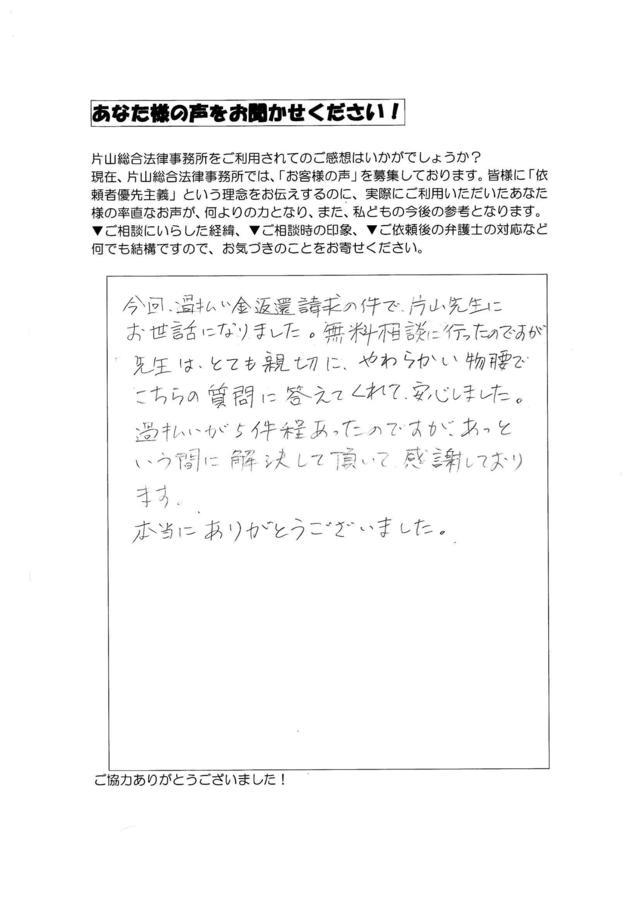 あなた様の声をお聞かせください！
片山総合法律事務所をご利用されてのご感想はいかがでしょうか？
現在、片山総合法律事務所では、「お客様の声」を募集しております。皆様に「依
頼者優先主義」という理念をお伝えするのに、実際にご利用いただいたあなた
様の率直なお声が、何よりの力となり、また、私どもの今後の参考となります。
▼ご相談にいらした経緯、▼ご相談時の印象、▼ご依頼後の弁護士の対応など
何でも結構ですので、お気づきのことをお寄せください。
今回、過払い金返還請求の件で、片山先生に
お世話になりました。無料相談に行ったのですが
先生は、とても親切に、やわらかい物腰で
こちらの質問に答えてくれて、安心しました。
過払いが5件程あったのですが、あっと
いう間に解決して頂いて、感謝しており
ます。
本当にありがとうございました。
ご協力ありがとうございました！